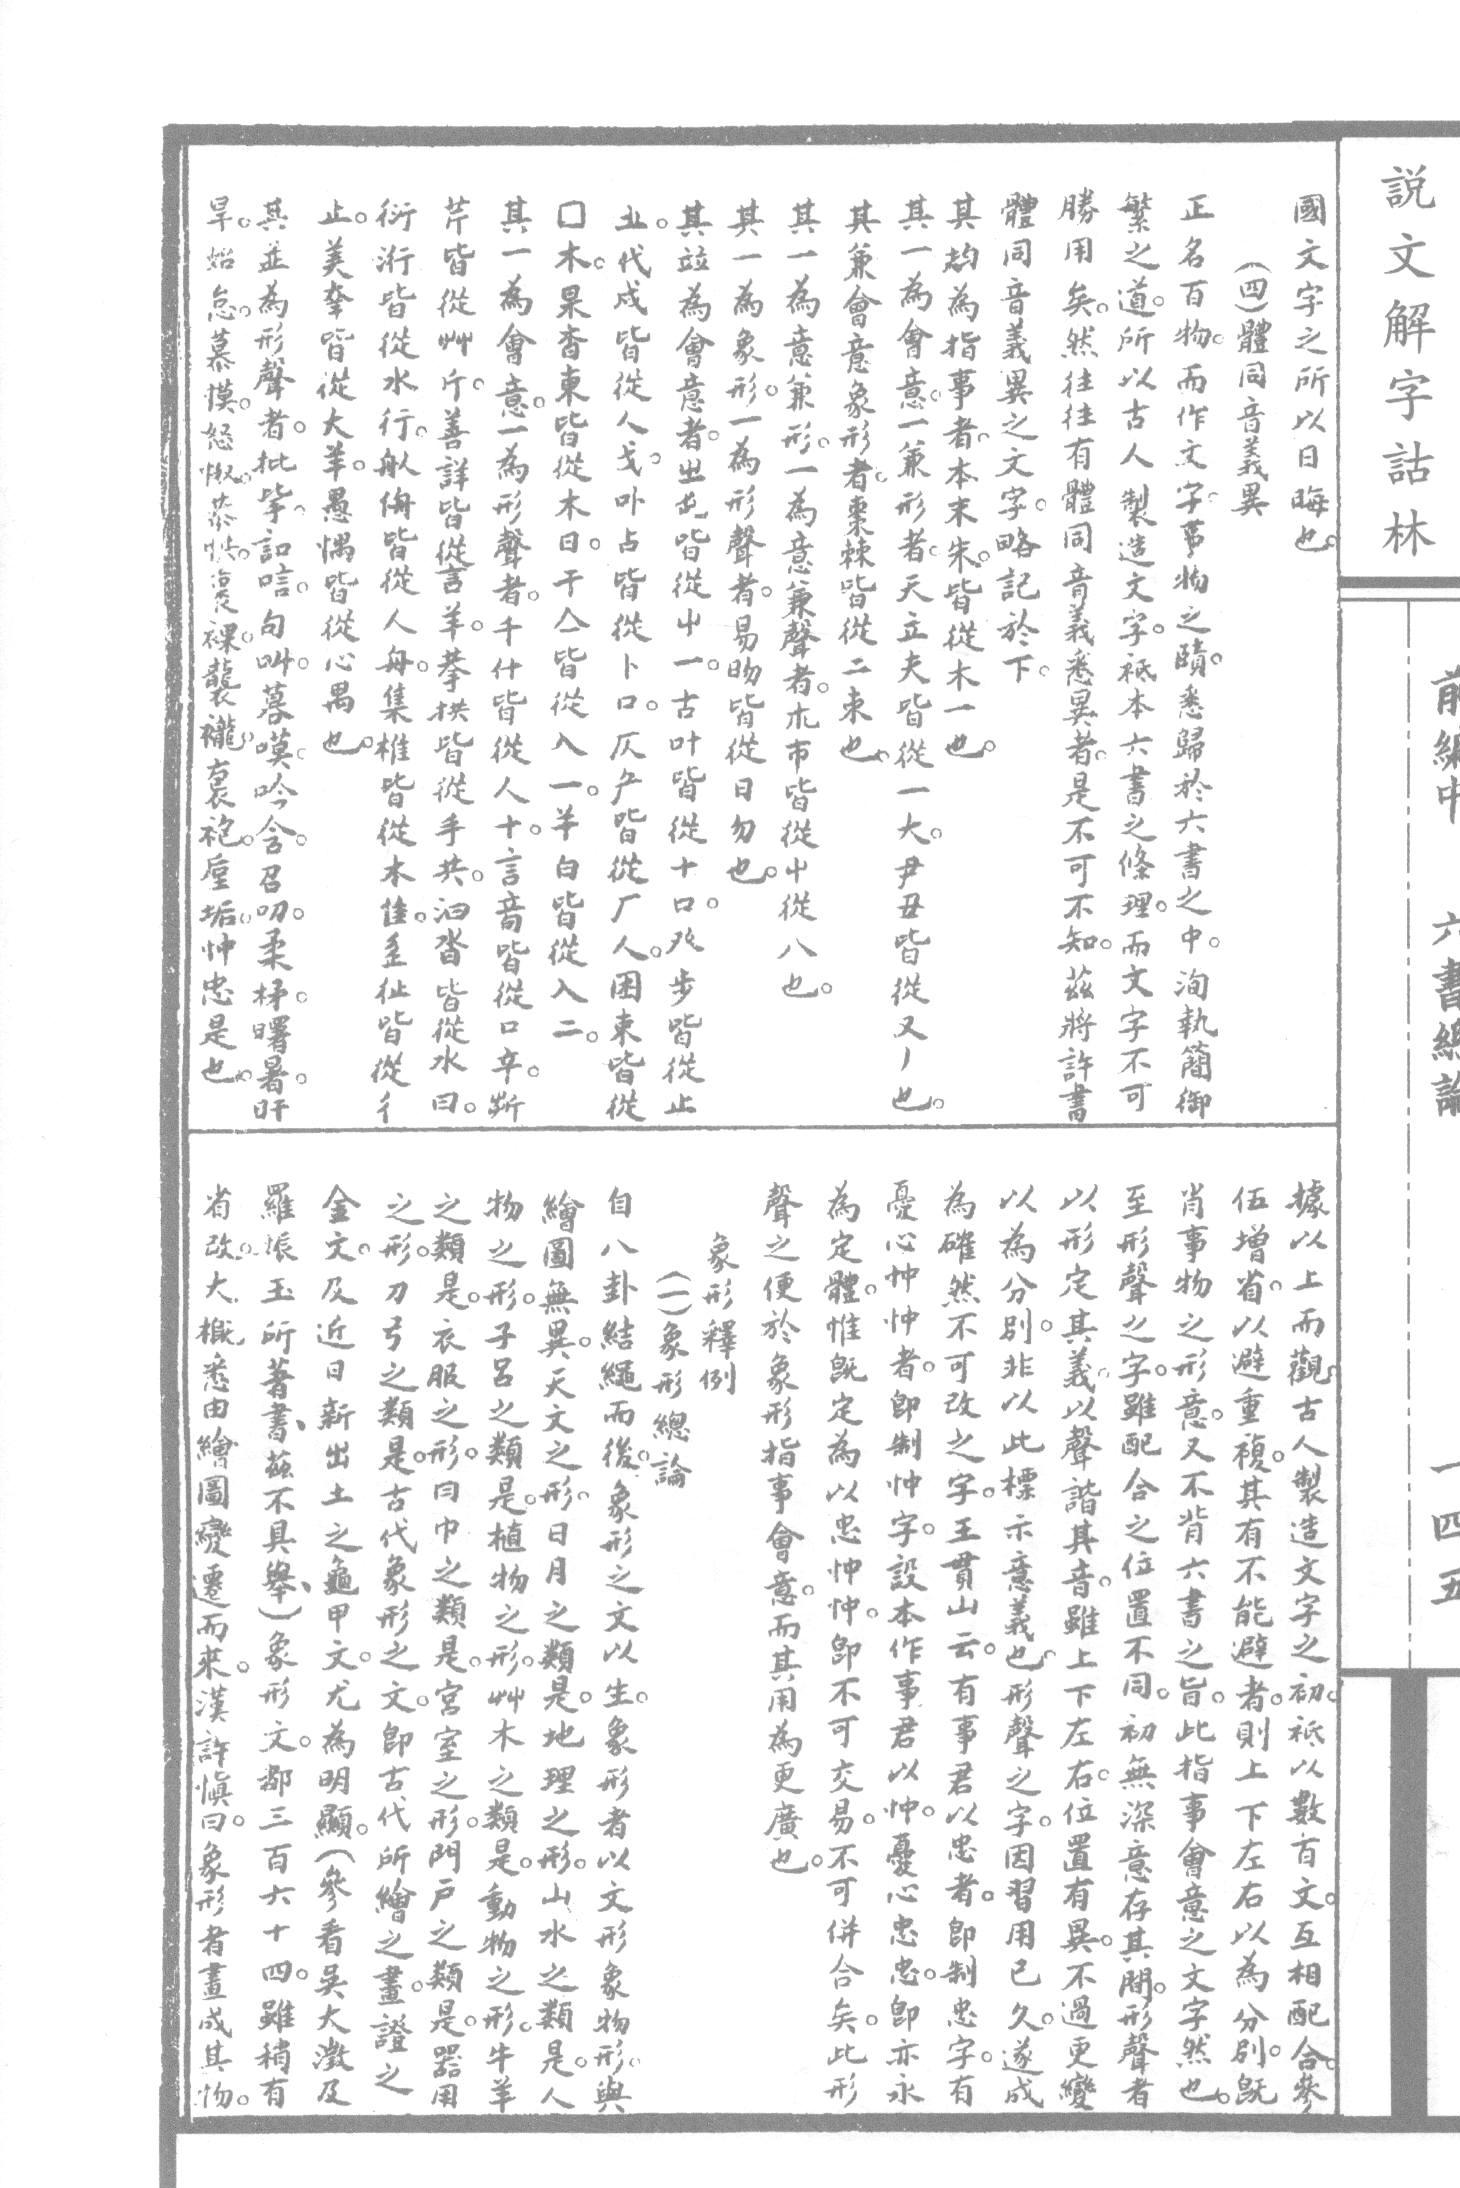 說文解字詁林
前編中　六書總論　一四五
國文字之所以日晦也。
(四)體同音義異
正名百物。而作文字。事物之賾。悉歸於六書之中。洵執簡御
繁之道。所以古人製造文字。祇本六書之條理。而文字不可
勝用矣。然往往有體同音義悉異者。是不可不知。茲將許書
體同音義異之文字。略記於下。
其均為指事者。本末朱。皆從木一也。
其一為會意。一兼形者。天立夫皆從一大。尹丑皆從又丿也。
其兼會意象形者。棗棘皆從二朿也。
其一為意兼形。一為意兼聲者。朮巿皆從屮從八也。
其一為象形。一為形聲者。易昒皆從日勿也。
其竝為會意者。㞢屯皆從屮一。古叶皆從十口。癶步皆從止
𣥂。代戍皆從人戈。卟占皆從卜口。仄𠂆皆從厂人。困束皆從
囗木。杲杳東皆從木日。干亼皆從入一。羊白皆從入二。
其一為會意。一為形聲者。千什皆從人十。言咅皆從口辛。斱
芹皆從艸斤。善詳皆從言羊。拲拱皆從手共。汩沓皆從水曰。
衍洐皆從水行。舧侜皆從人舟。集椎皆從木隹。𨒌征皆從彳
止。美羍皆從大羊。愚惆皆從心禺也。
其並為形聲者。批㧘。訠唁。句叫。蓦嘆。吟含。召叨。柔柕。曙暑。旰
旱。始怠。慕慔。怒㤽。恭恾。裛裸。襲襱。裹袍。垕垢。忡忠是也。
據以上而觀。古人製造文字之初。祇以數百文。互相配合。參
伍增省。以避重複。其有不能避者。則上下左右以為分別。既
肖事物之形意。又不背六書之旨。此指事會意之文字然也。
至形聲之字。雖配合之位置不同。初無深意存其間。形聲者
以形定其義。以聲諧其音。雖上下左右。位置有異。不過更變
以為分別。非以此標示意義也。形聲之字。因習用已久。遂成
為確然不可改之字。王貫山云。有事君以忠者。即制忠字。有
憂心忡忡者。即制忡字。設本作事君以忡。憂心忠忠。即亦永
為定體。惟既定為以忠忡忡。即不可交易。不可併合矣。此形
聲之便於象形指事會意。而其用為更廣也。
象形釋例
(一)象形總論
自八卦結繩而後。象形之文以生。象形者以文形象物形。與
繪圖無異。天文之形。日月之類是。地理之形。山水之類是。人
物之形。子呂之類是。植物之形。艸木之類是。動物之形。牛羊
之類是。衣服之形。冃巾之類是。宮室之形。門戶之類是。器用
之形。刀弓之類是。古代象形之文。即古代所繪之畫。證之
金文。及近日新出土之龜甲文。尤為明顯。(參看吳大澂及
羅振玉所著書、茲不具舉、)象形文。鄰三百六十四。雖稍有
省改。大概悉由繪圖變遷而來。漢許慎曰。象形者畫成其物。